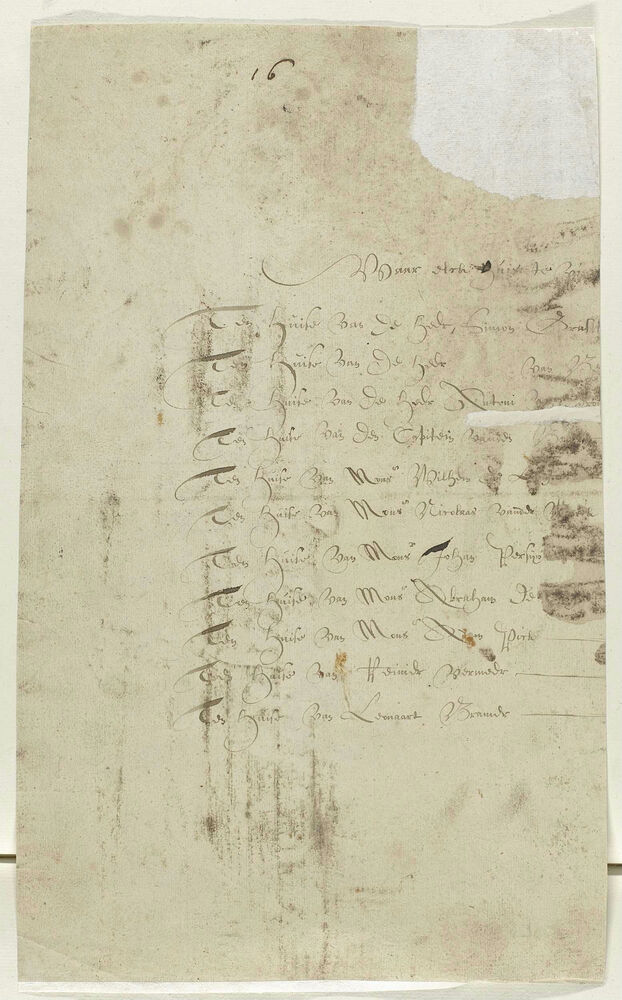 16
Waar elck huijs te
Ten Huise van de Heer, Simon
Ten Huise van de Heer van
Ten Huise van de Heer Antoni
Ten Huise van den Capitein vanden
Ten Huise van Mons^r Wilhem de
Ten Huise van Mons^r Nicolaas vander
Ten Huise van Mons^r Johan Persijn
Ten Huise van Mons^r Abraham de
Ten Huise van Mons^r Pick
Ten Huise van Reinier Vermeer
Ten Huise van Leonaart Bramer